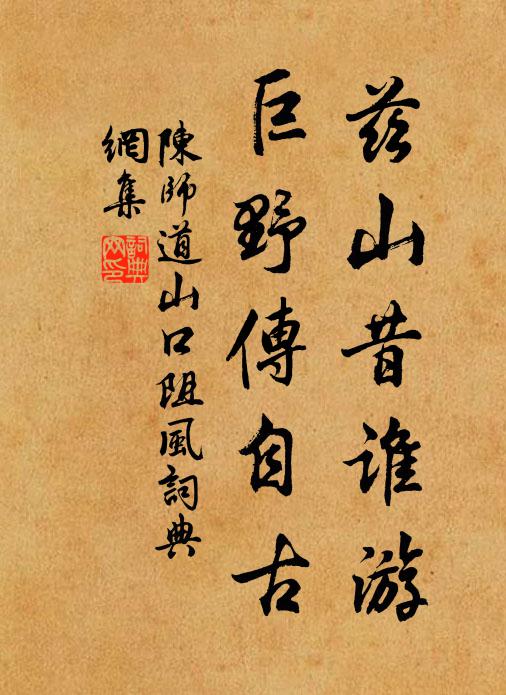 茲山昔誰游
巨野傳自古
陳師道山口阻風詞典
網集
詞典
网印